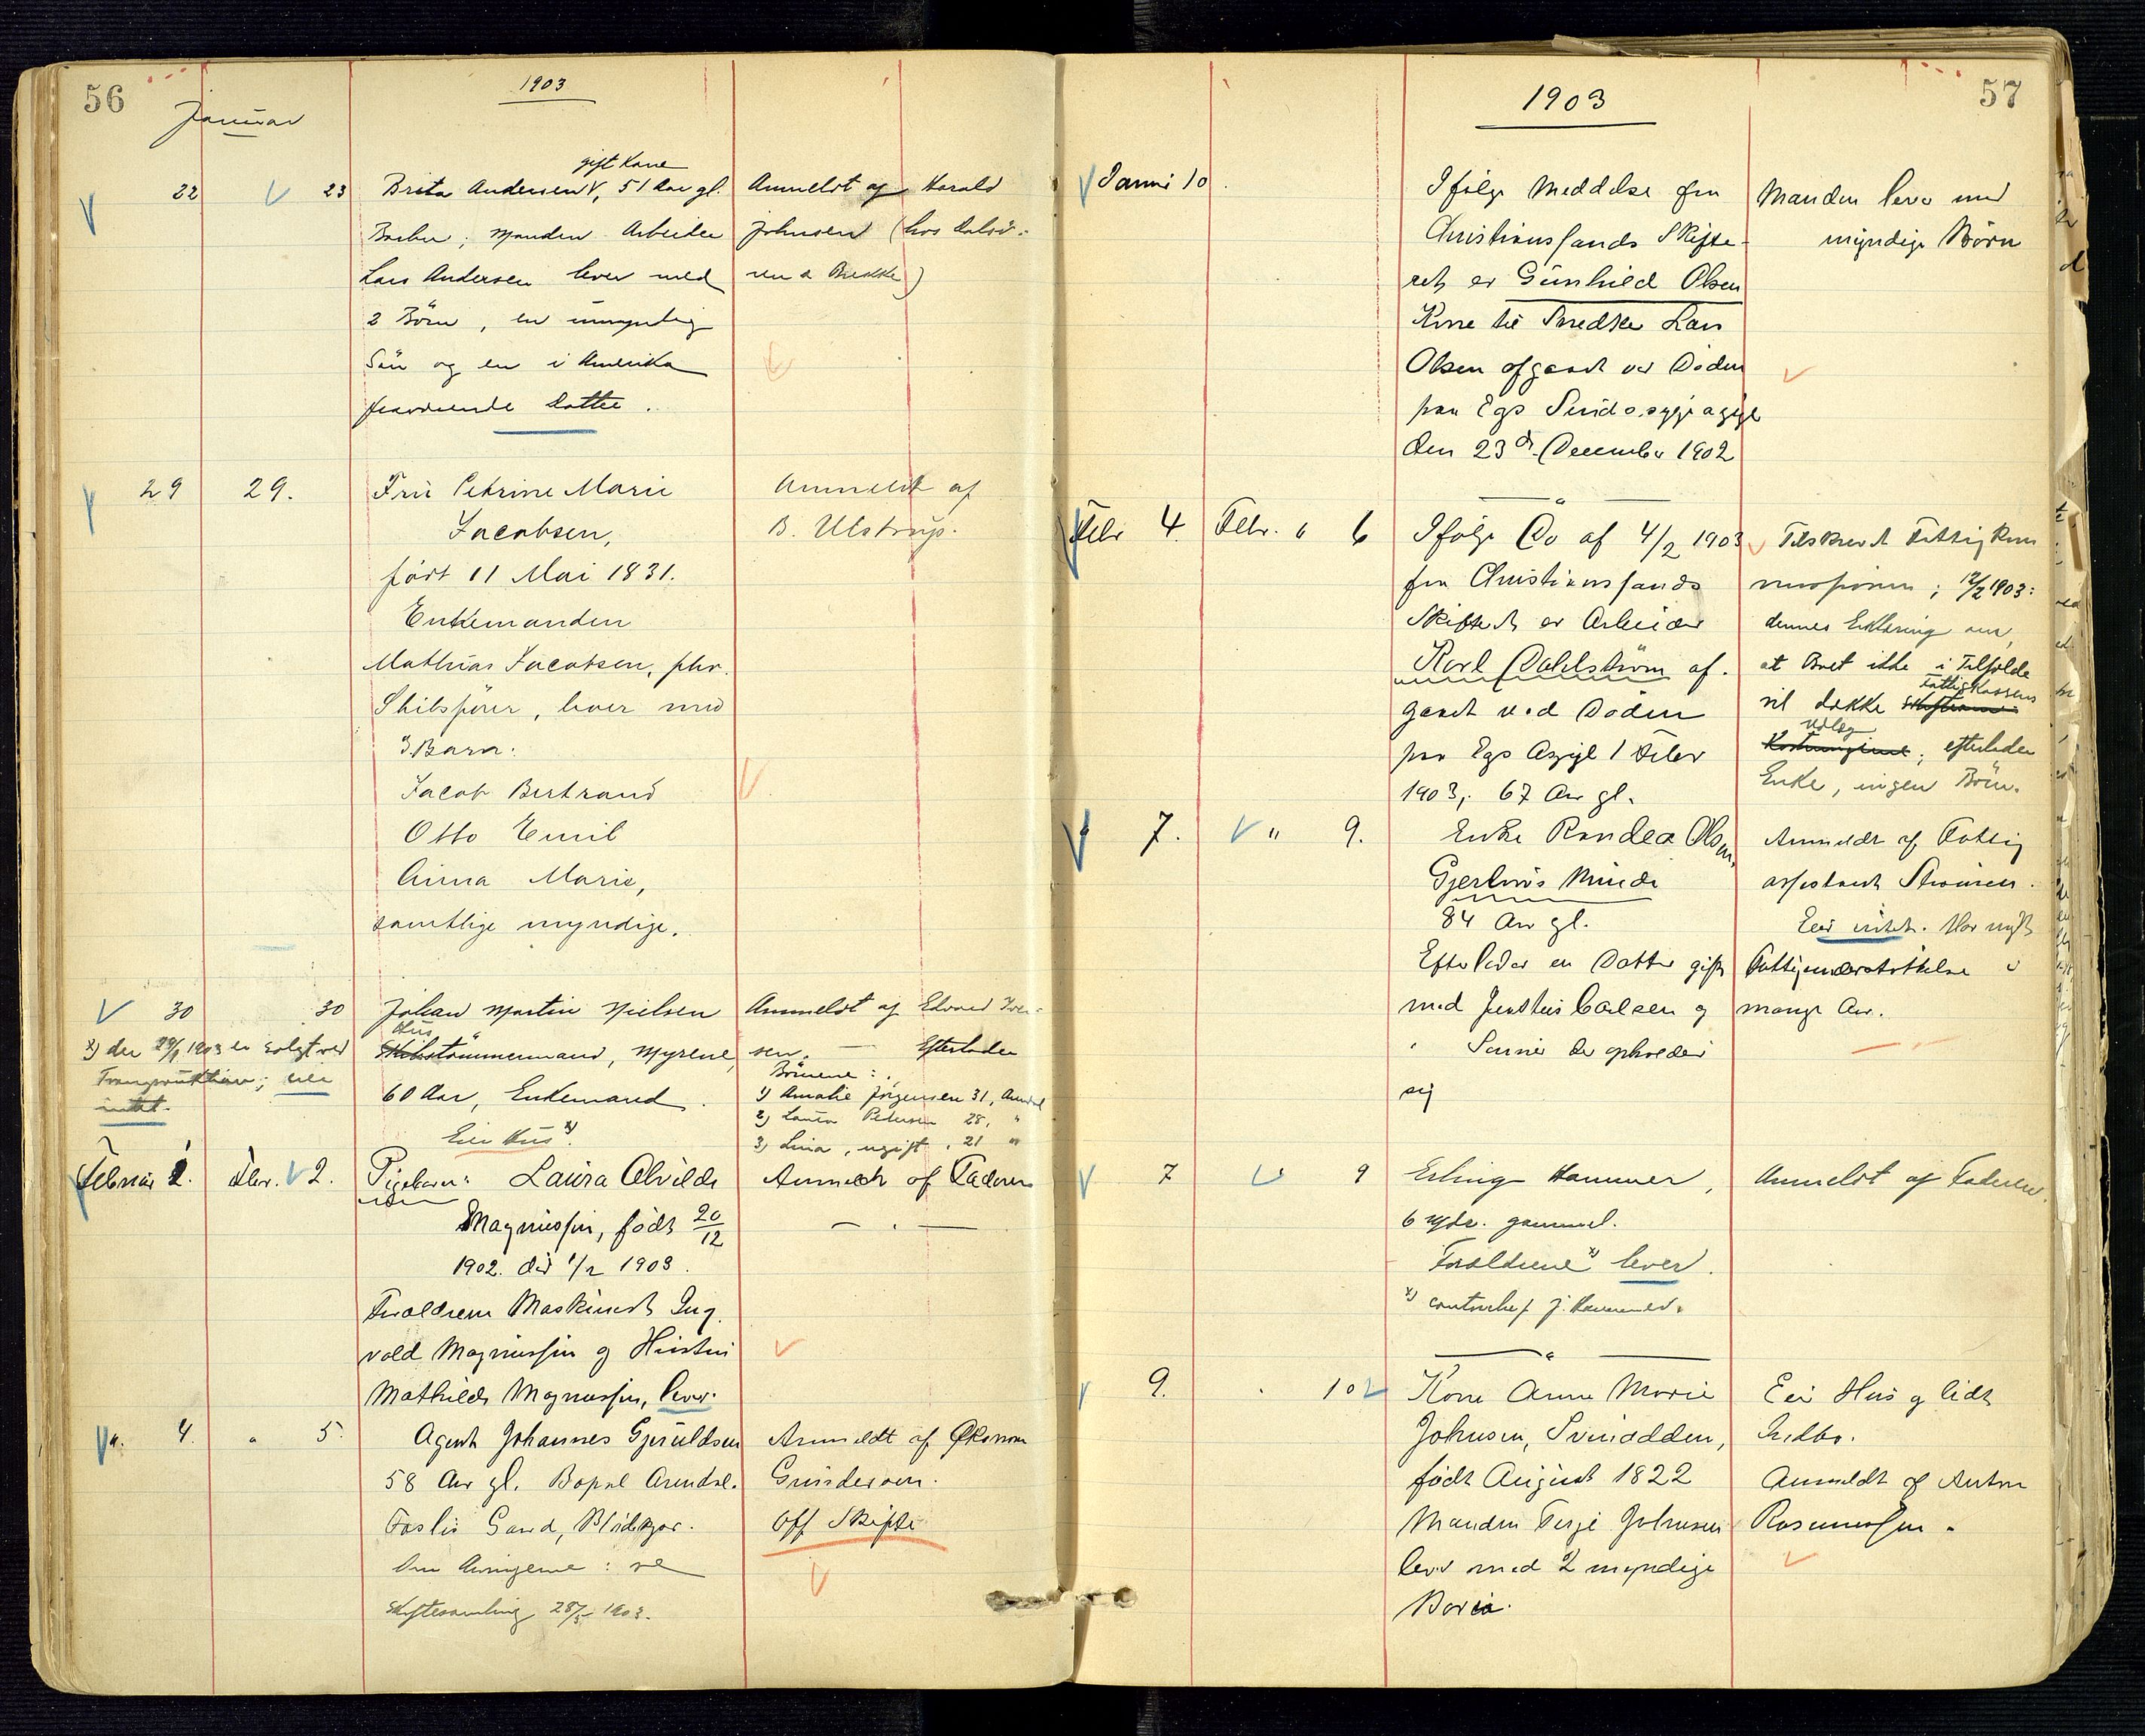 56
1903
Januar
22 23 Brita Andersen, 51 Aar gl.
gift Kone
Barbu; Manden Arbeider
Lars Andersen lever med
2 Börn, en umyndig
Sön og en i Amerika
fraværende Datter.
Anmeldt af Harald
Johnsen (hos
29 29. Fru Petrine Marie
Jacobsen,
født 11 Mai 1831.
Enkemanden
Mathias Jacobsen, fhv.
Skibsfører, lever med
3 Barn:
Jacob Bertrand
Otto Emil
Anna Marie,
samtlige myndige.
Anmeldt af
B. Ulstrup.
30 30 Johan Martin Nielsen
Hus
Skibstømmermand, Myrene,
60 Aar, Enkemand.
Eier Hus x)
x) den 1903 er solgt ved
Tvangsauktion; eier
intet.
Anmeldt af Edvard
sen. — Efterlader
Börnene:
1) Amalie Jørgensen 31, Arendal
2) Laura Petersen 28, "
3) Lina, ugift, 21 "
Februar 2. Febr. 2. Pigebarn: Laura Alvilde
Magnussen, født 20/12
1902. død 1/2 1903.
Forældrene Maskinist Ing
vald Magnussen og
Mathilde Magnussen, lever.
Anmeldt af Faderen
4. " 5. Agent Johannes Gjeruldsen
58 Aar gl. Bopæl Arendal.
Gaard,
Om Arvingerne: se
Skiftesamling 28/3 1903.
Anmeldt af Økonom
Gundersen.
Off Skifte
57
1903
Januar 10. Ifølge Meddelse fra
Christianssands Skifte-
ret er Gunhild Olsen
Kone til Snedker Lars
Olsen afgaaet ved Døden
paa Egs Sindssygeasyl
den 23de December 1902
Manden lever med
myndige Børn
Febr 4. Febr. " 6 Ifølge Do af 4/2 1903
fra Christianssands
Skifteret er Arbeider
Karl Dahlstrøm af-
gaaet ved Døden
paa Egs Asyl 1 Febr
1903, 67 Aar gl.
Tilskrevet Fattigkom
missionen; 12/2 1903:
dennes Erklæring om,
at Boet ikke i Tilfælde
vil dække Fattigkassens
Udlæg; efterlader
Enke, ingen Börn.
7. " 9. Enke Randea Olsen,
Gjerlaus Minde
84 Aar gl.
Efterlader en Datter gift
med Carlsen og
Sønner der opholder
sig
Anmeldt af Fattig
assistent Strømsen.
Eier intet. Har nydt
Fattigunderstøttelse i
mange Aar.
7 9 Erling Hammer,
6 Mdr. gammel.
Forældrene x) lever.
x) J. Hammer.
Anmeldt af Faderen.
9. " 10 Kone Anne Marie
Johnsen, Svinodden,
født August 1822
Manden Terje Johnsen
lever med 2 myndige
Børn.
Eier Hus og lidt
Indbo.
Anmeldt af Anton
Rasmussen.